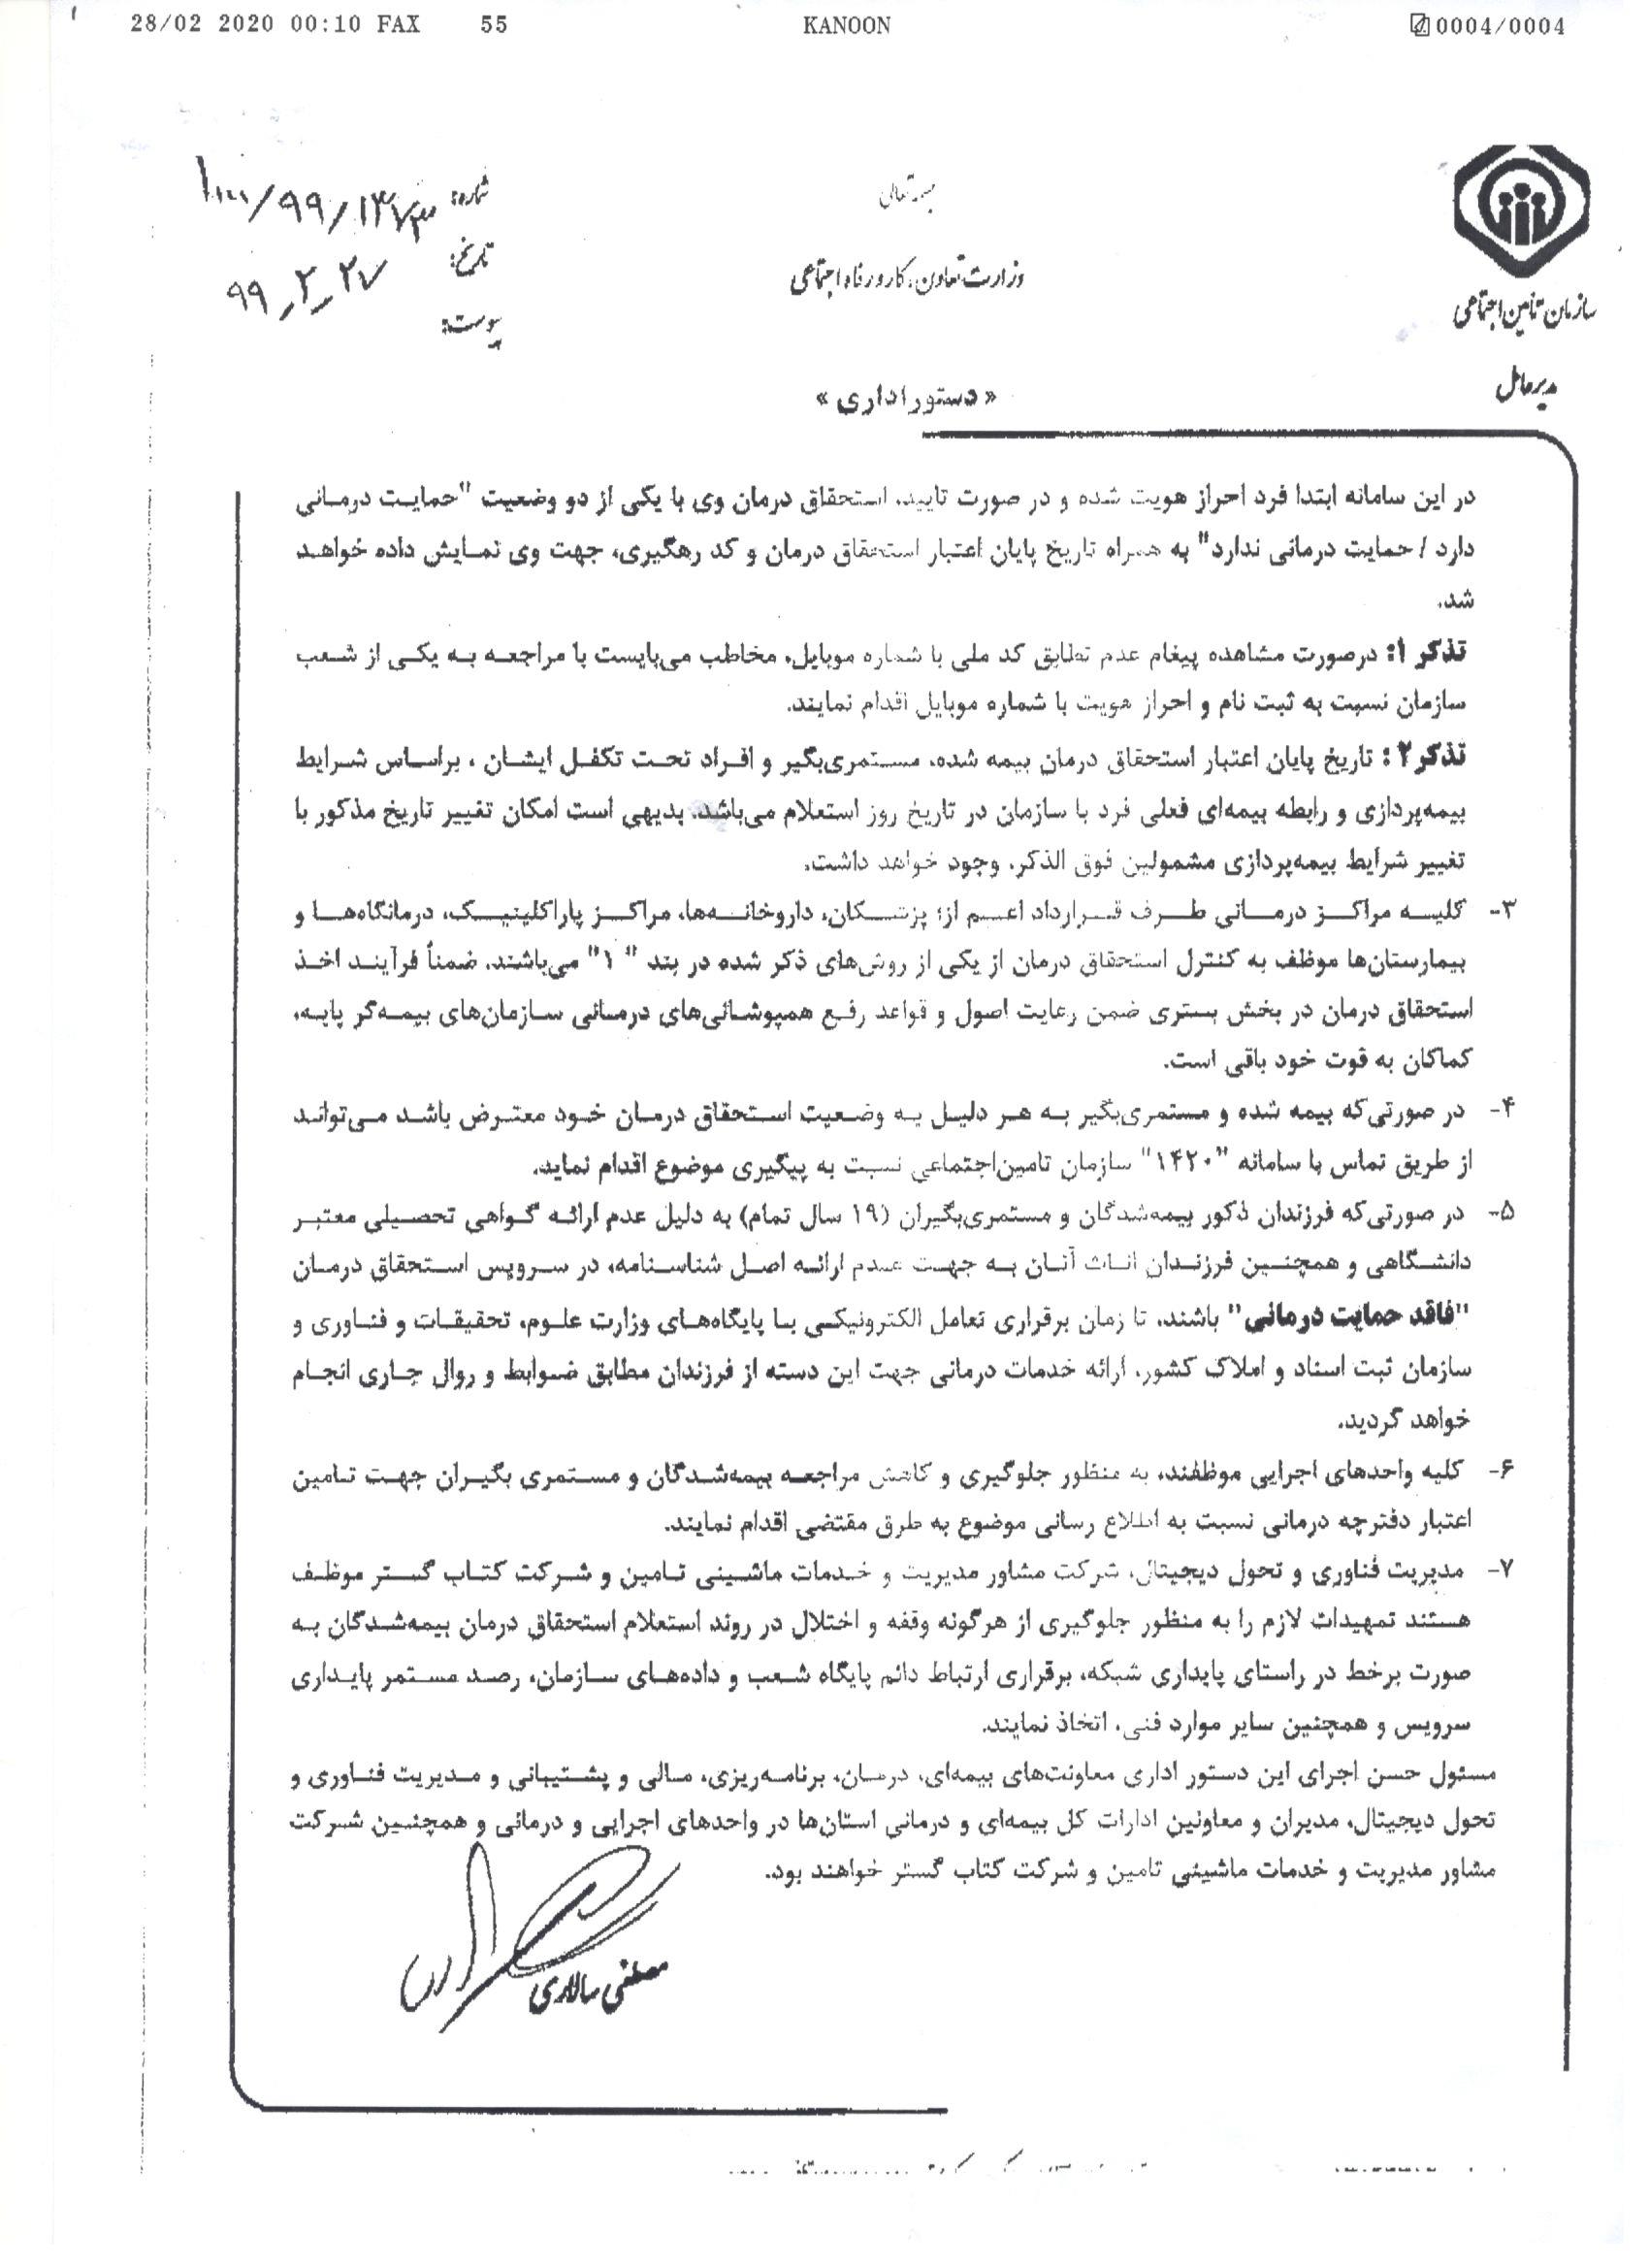 28/02 2020 00:10 FAX 55 KANOON 0004/0004
سازمان تأمین اجتماعی
مدیرعامل
بسمه تعالی
وزارت تعاون، کار و رفاه اجتماعی
شماره: ۱۰۰۰/۹۹/۱۳۷۳
تاریخ: ۹۹-۲-۲۷
پیوست:
« دستور اداری »
در این سامانه ابتدا فرد احراز هویت شده و در صورت تایید، استحقاق درمان وی با یکی از دو وضعیت "حمایت درمانی
دارد / حمایت درمانی ندارد" به همراه تاریخ پایان اعتبار استحقاق درمان و کد رهگیری، جهت وی نمایش داده خواهد
شد.
تذکر ۱: درصورت مشاهده پیغام عدم تطابق کد ملی با شماره موبایل، مخاطب می‌بایست با مراجعه به یکی از شعب
سازمان نسبت به ثبت نام و احراز هویت با شماره موبایل اقدام نمایند.
تذکر ۲: تاریخ پایان اعتبار استحقاق درمان بیمه شده، مستمری‌بگیر و افراد تحت تکفل ایشان ، براساس شرایط
بیمه‌پردازی و رابطه بیمه‌ای فعلی فرد با سازمان در تاریخ روز استعلام می‌باشد. بدیهی است امکان تغییر تاریخ مذکور با
تغییر شرایط بیمه‌پردازی مشمولین فوق الذکر، وجود خواهد داشت.
۳- کلیه مراکز درمانی طرف قرارداد اعم از؛ پزشکان، داروخانه‌ها، مراکز پاراکلینیک، درمانگاه‌ها و
بیمارستان‌ها موظف به کنترل استحقاق درمان از یکی از روش‌های ذکر شده در بند "۱" می‌باشند. ضمناً فرآیند اخذ
استحقاق درمان در بخش بستری ضمن رعایت اصول و قواعد رفع همپوشانی‌های درمانی سازمان‌های بیمه‌گر پایه،
کماکان به قوت خود باقی است.
۴- در صورتی‌که بیمه شده و مستمری‌بگیر به هر دلیل به وضعیت استحقاق درمان خود معترض باشد می‌تواند
از طریق تماس با سامانه "۱۴۲۰" سازمان تامین‌اجتماعی نسبت به پیگیری موضوع اقدام نماید.
۵- در صورتی‌که فرزندان ذکور بیمه‌شدگان و مستمری‌بگیران (۱۹ سال تمام) به دلیل عدم ارائه گواهی تحصیلی معتبر
دانشگاهی و همچنین فرزندان اناث آنان به جهت عدم ارائه اصل شناسنامه، در سرویس استحقاق درمان
"فاقد حمایت درمانی" باشند، تا زمان برقراری تعامل الکترونیکی با پایگاه‌های وزارت علوم، تحقیقات و فناوری و
سازمان ثبت اسناد و املاک کشور، ارائه خدمات درمانی جهت این دسته از فرزندان مطابق ضوابط و روال جاری انجام
خواهد گردید.
۶- کلیه واحدهای اجرایی موظفند، به منظور جلوگیری و کاهش مراجعه بیمه‌شدگان و مستمری بگیران جهت تامین
اعتبار دفترچه درمانی نسبت به اطلاع رسانی موضوع به طرق مقتضی اقدام نمایند.
۷- مدیریت فناوری و تحول دیجیتال، شرکت مشاور مدیریت و خدمات ماشینی تامین و شرکت کتاب گستر موظف
هستند تمهیدات لازم را به منظور جلوگیری از هرگونه وقفه و اختلال در روند استعلام استحقاق درمان بیمه‌شدگان به
صورت برخط در راستای پایداری شبکه، برقراری ارتباط دائم پایگاه شعب و داده‌های سازمان، رصد مستمر پایداری
سرویس و همچنین سایر موارد فنی، اتخاذ نمایند.
مسئول حسن اجرای این دستور اداری معاونت‌های بیمه‌ای، درمان، برنامه‌ریزی، مالی و پشتیبانی و مدیریت فناوری و
تحول دیجیتال، مدیران و معاونین ادارات کل بیمه‌ای و درمانی استان‌ها در واحدهای اجرایی و درمانی و همچنین شرکت
مشاور مدیریت و خدمات ماشینی تامین و شرکت کتاب گستر خواهند بود.
مصطفی سالاری